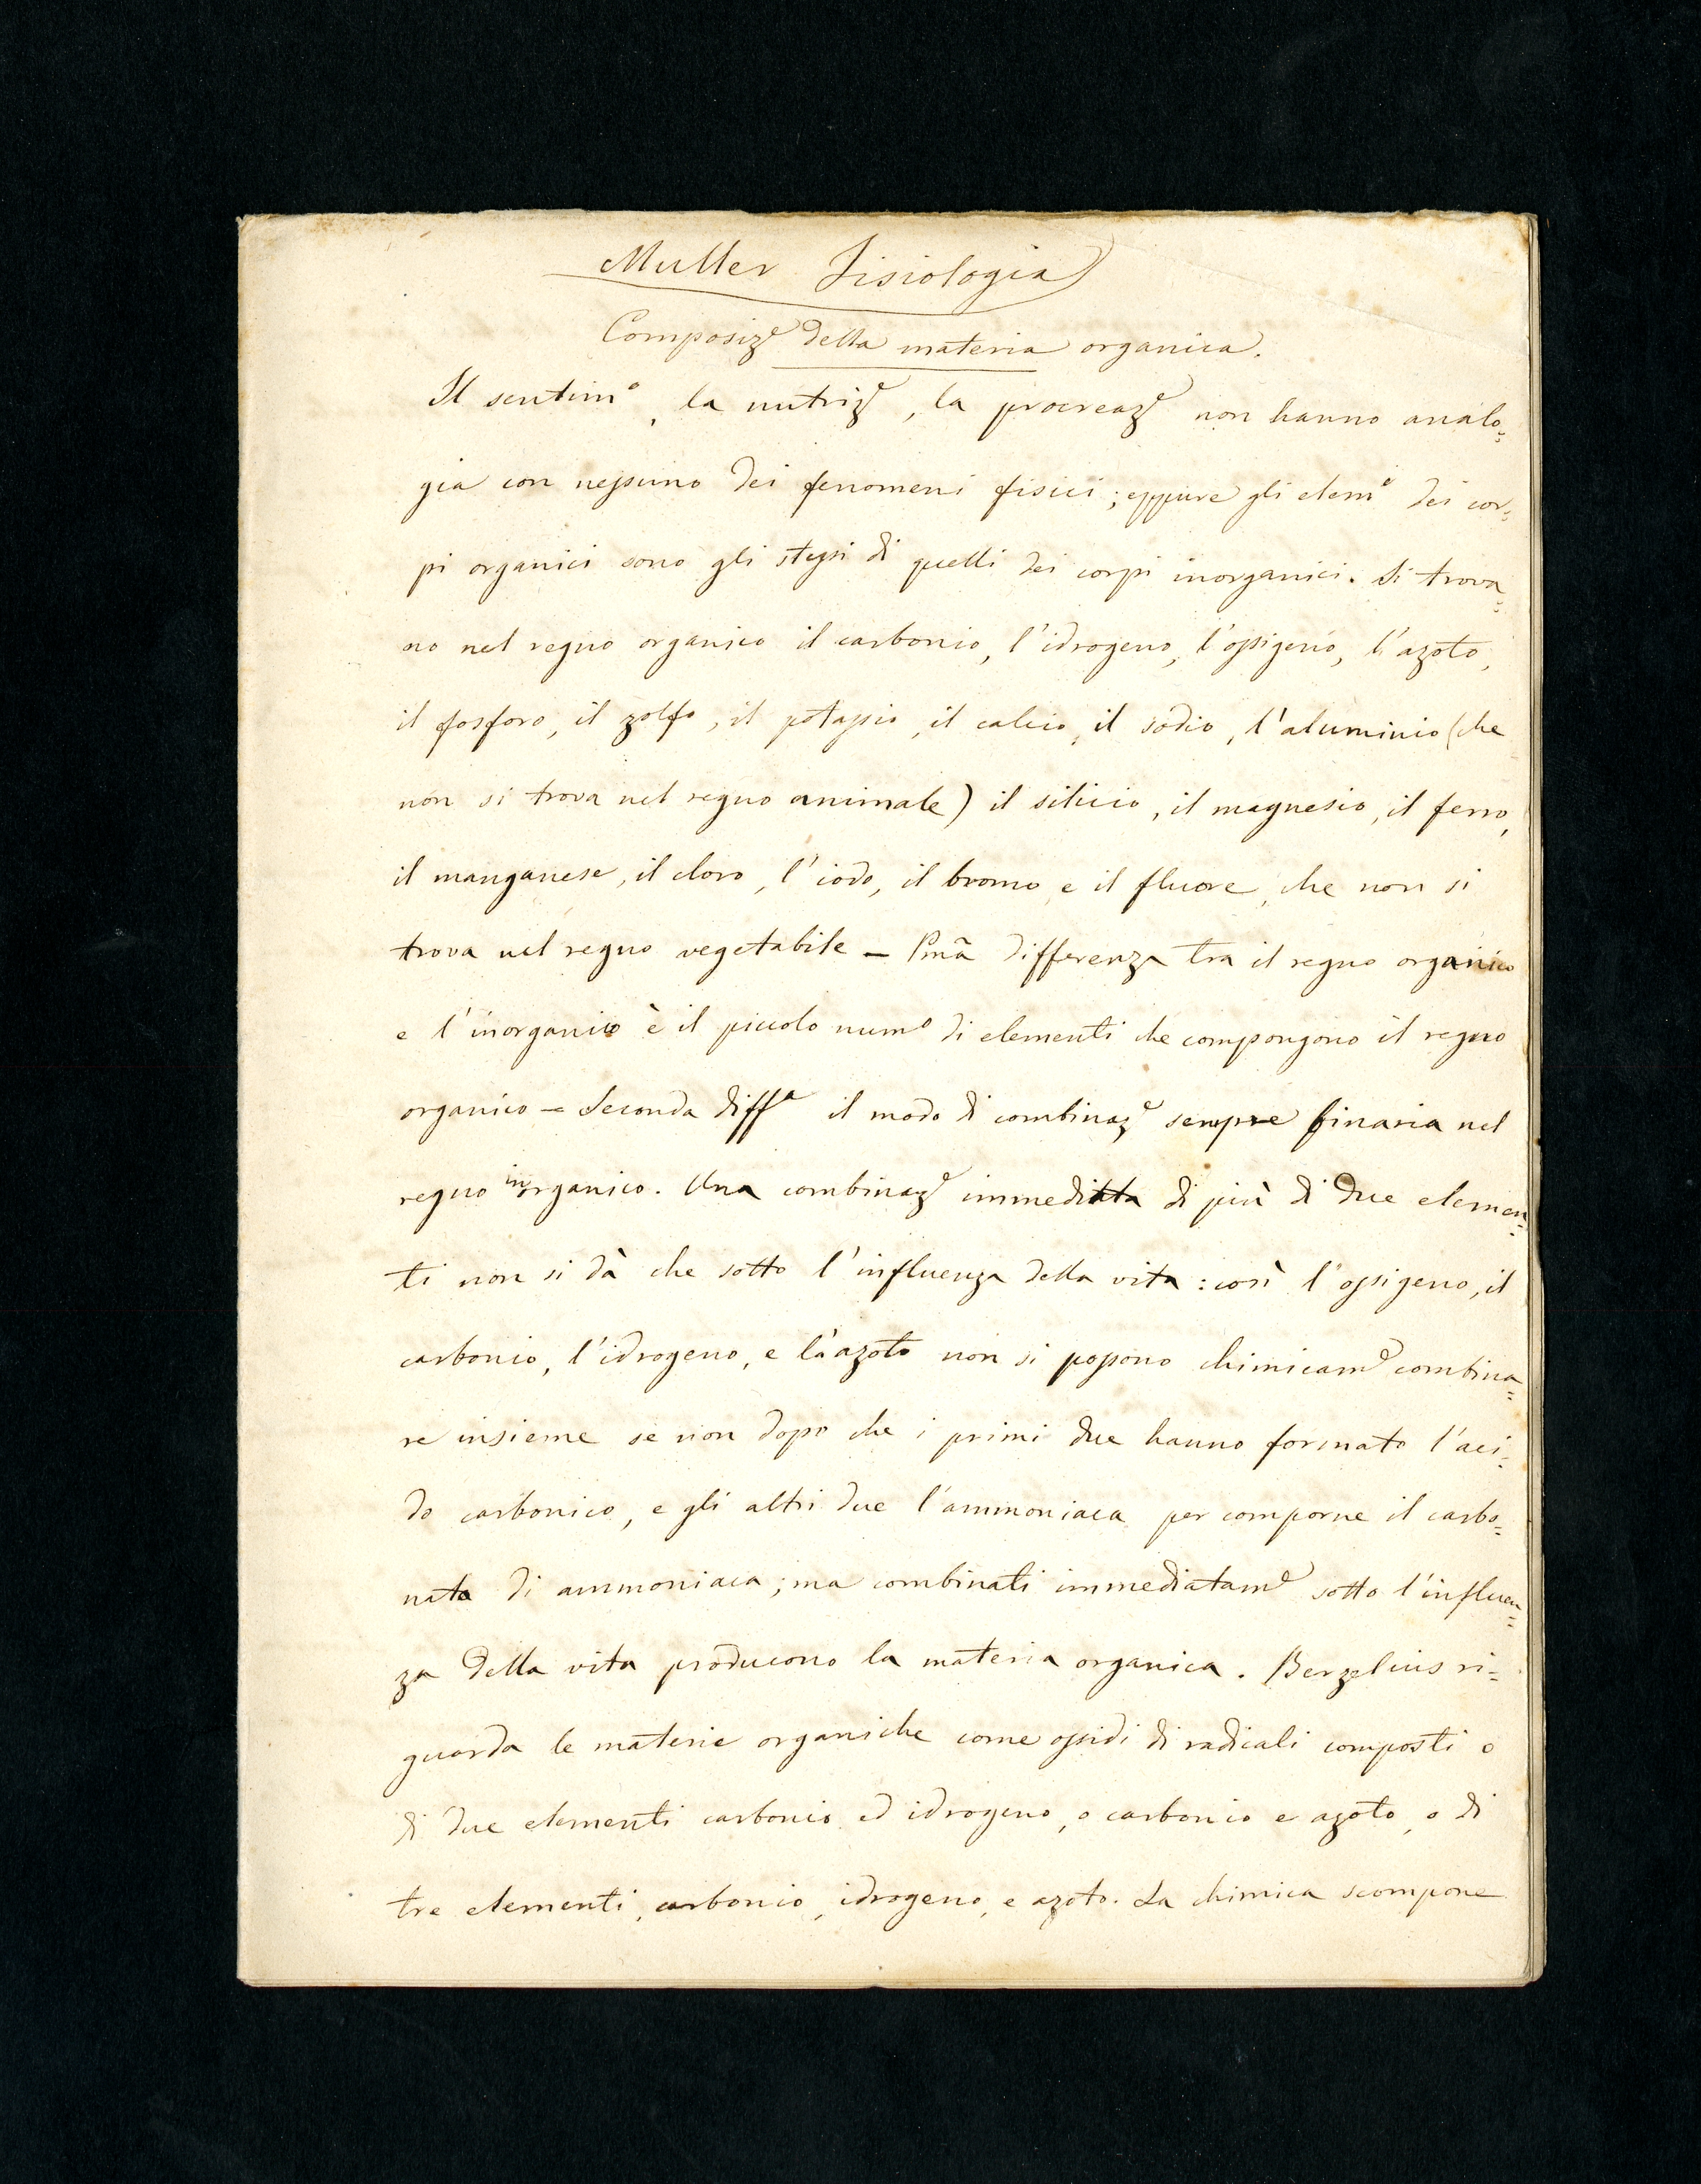 Muller Fisiologia
Composizᵉ della materia organica.
Il sentimᵒ, la nutrizᵉ, la procreazᵉ non hanno analo=
gia con nessuno dei fenomeni fisici; eppure gli elemⁱ dei cor=
pi organici sono gli stessi di quelli dei corpi inorganici. Si trova=
no nel regno organico il carbonio, l'idrogeno, l'ossigeno, l'azoto,
il fosforo, il zolfo, il potassio, il calcio, il sodio, l'aluminio (che
non si trova nel regno animale) il silicio, il magnesio, il ferro,
il manganese, il cloro, l'iodo, il bromo e il fluore, che non si
trova nel regno vegetabile — Pmã differenza tra il regno organico
e l'inorganico è il piccolo numᵒ di elementi che compongono il regno
organico — Seconda diffᵃ il modo di combinazᵉ sempre binaria nel
regno inorganico. Una combinazᵉ immediata di più di due elemen=
ti non si dà che sotto l'influenza della vita: così l'ossigeno, il
carbonio, l'idrogeno, e l'azoto non si possono chimicamᵉ combina=
re insieme se non dopo che i primi due hanno formato l'aci=
do carbonico, e gli altri due l'ammoniaca per comporne il carbo=
nato di ammoniaca; ma combinati immediatamᵉ sotto l'influen=
za della vita producono la materia organica. Berzelius ri=
guarda le materie organiche come ossidi di radicali composti o
di due elementi carbonio ed idrogeno, o carbonio e azoto, o di
tre elementi, carbonio, idrogeno, e azoto. La chimica scompone